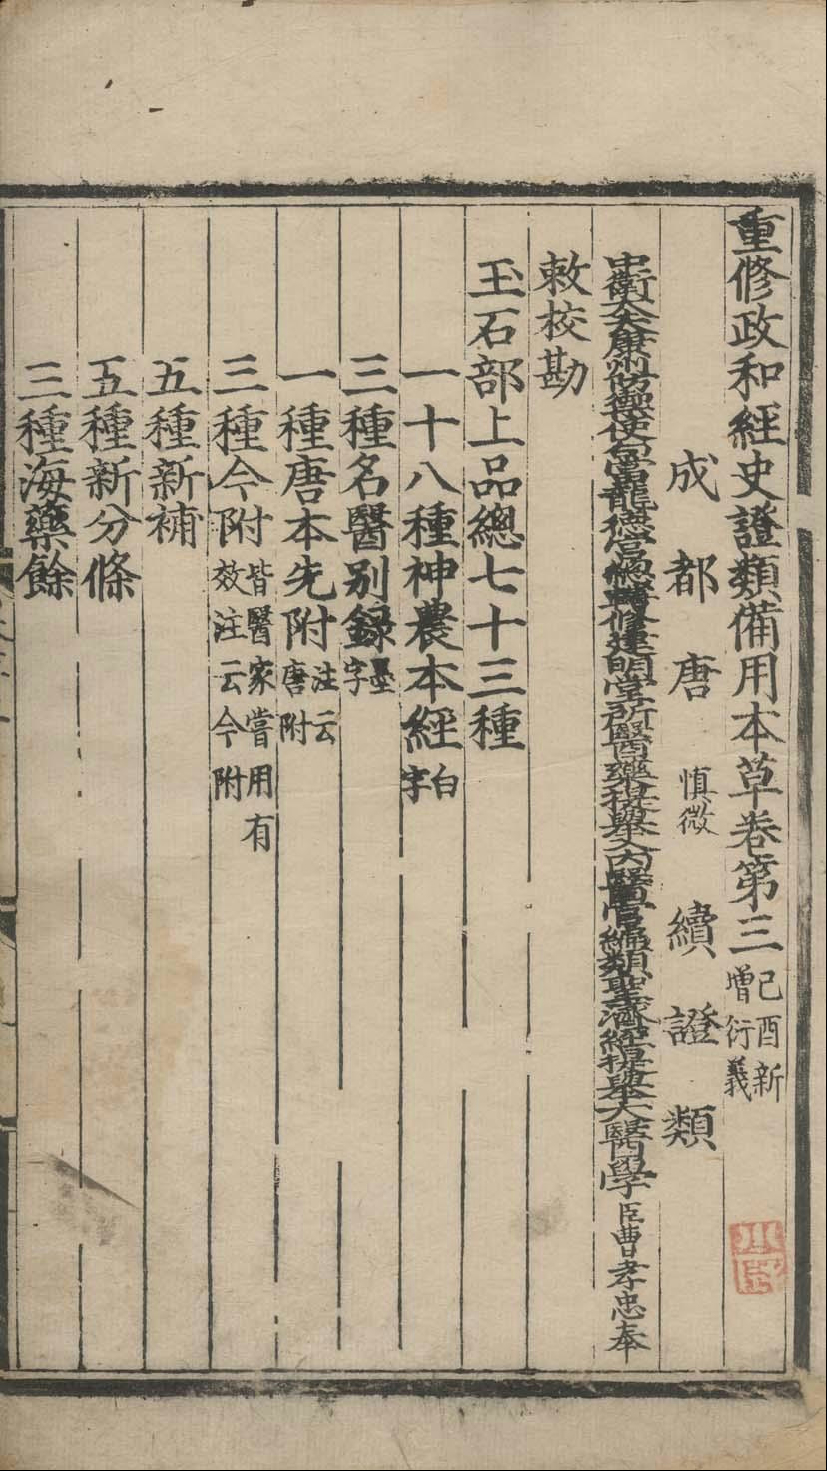 重修政和經史證類備用本草卷第三己酉新增衍義
成都唐慎微續證類
中衛大夫康州防禦使句當龍德宮總轄修建明堂所醫藥提舉入內醫官編類聖濟經提舉太醫學臣曹孝忠奉
敕校勘
玉石部上品總七十三種
一十八種神農本經白字
三種名醫別録墨字
一種唐本先附注云唐附
三種今附皆醫家嘗用有效注云今附
五種新補
五種新分條
三種海藥餘